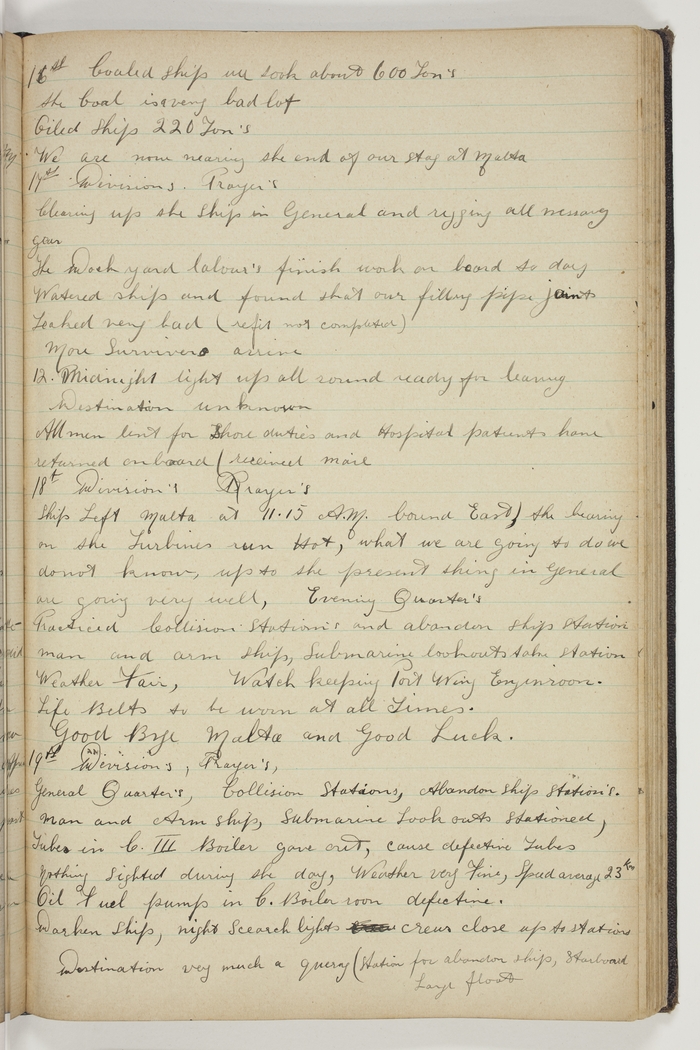 16st Coaled Ship we took about 600 Ton's
the Coal is a very bad lot
Oiled Ship 220 Ton's
We are now nearing the end of our stay at Malta
17st Division's. Prayer's
Clearing up the Ship in General and rigging all nessary
gear
The Dock yard labour's finish work on board to day
Watered ship and found that our filling pipe joints
Leaked very bad (refit not completed)
More Survivers arrive
12. Midnight light up all round ready for leaving
Destination unknown
All men lent for Shore duties and Hospital patients have
returned onboard (received mail
18t Division's Prayer's
Ship Left Malta at 11.15 A.M. bound East) the bearing
on the Turbines run Hot, what we are going to do we
donot know, up to the present thing in General
are going very well, Evening Quarter's
Practiced Collision Station's and abandon ship station
man and arm ship, Submarine lookouts take station
Weather Fair, Watch keeping Port Wing Enginroom.
Life Belts to be worn at all Times.
Good Bye Malta and Good Luck.
19th Division's, Prayer's,
General Quarter's, Collision Stations, Abandon Ship Station's.
Man and Arm ship, Submarine Look outs stationed,
Tubes in C. III Boiler gave out, cause defective Tubes
Nothing Sighted during the day, Weather very Fine, Speed average 23
Oil Fuel pump in C. Boiler room defective.
Darken Ship, night Scearch lights crews close up to stations
Destination very much a query (Station for abandon ship, Starboard
Large float